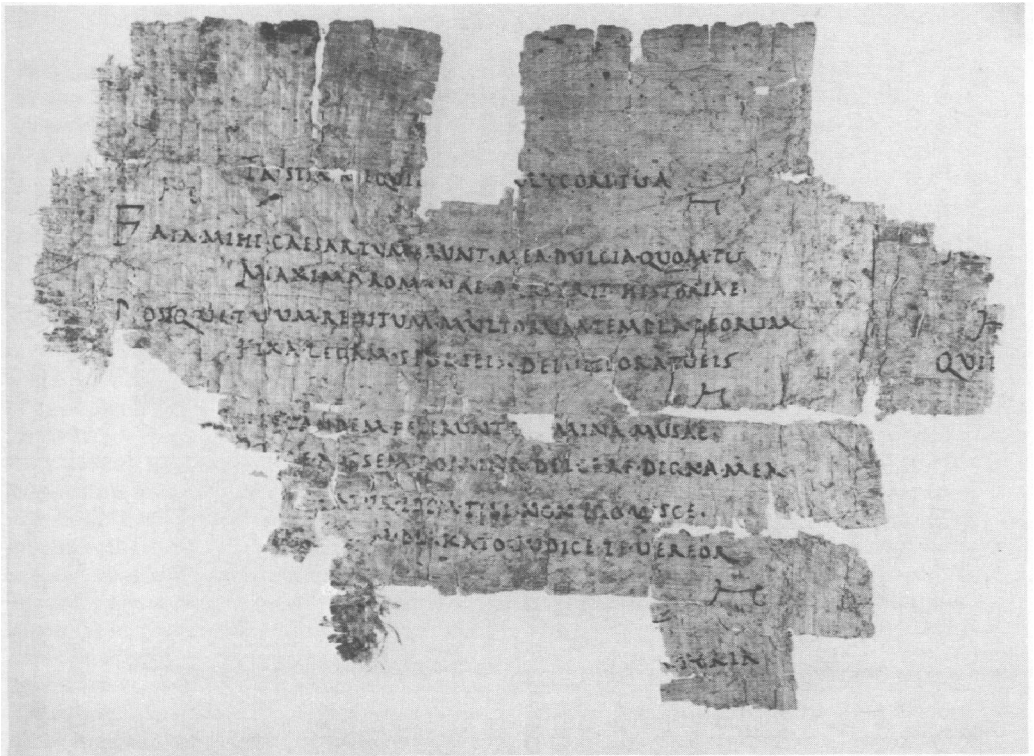 TRISTIA NEQUIT A·LYCORI·TUA
FATA·MIHI·CAESAR·TUM·ERUNT·MEA·DULCIA·QUOM·TU
MAXIMA·ROMANAE·PARS·ERIT·HISTORIAE·
POSTQUE·TUUM·REDITUM·MULTORUM·TEMPLA·DEORUM
FIXA·LEGAM·SPOLIEIS·DEIVITIORA·TUEIS
TANDEM·FECERUNT· MINA·MUSAE·
POSSEM·DOMINA·DEICERE·DIGNA·MEA
ATUR·IDEM·TIBI·NON·EGO·VISCE·
KATO·IUDICE·TE·VEREOR
TYRIA
QUI